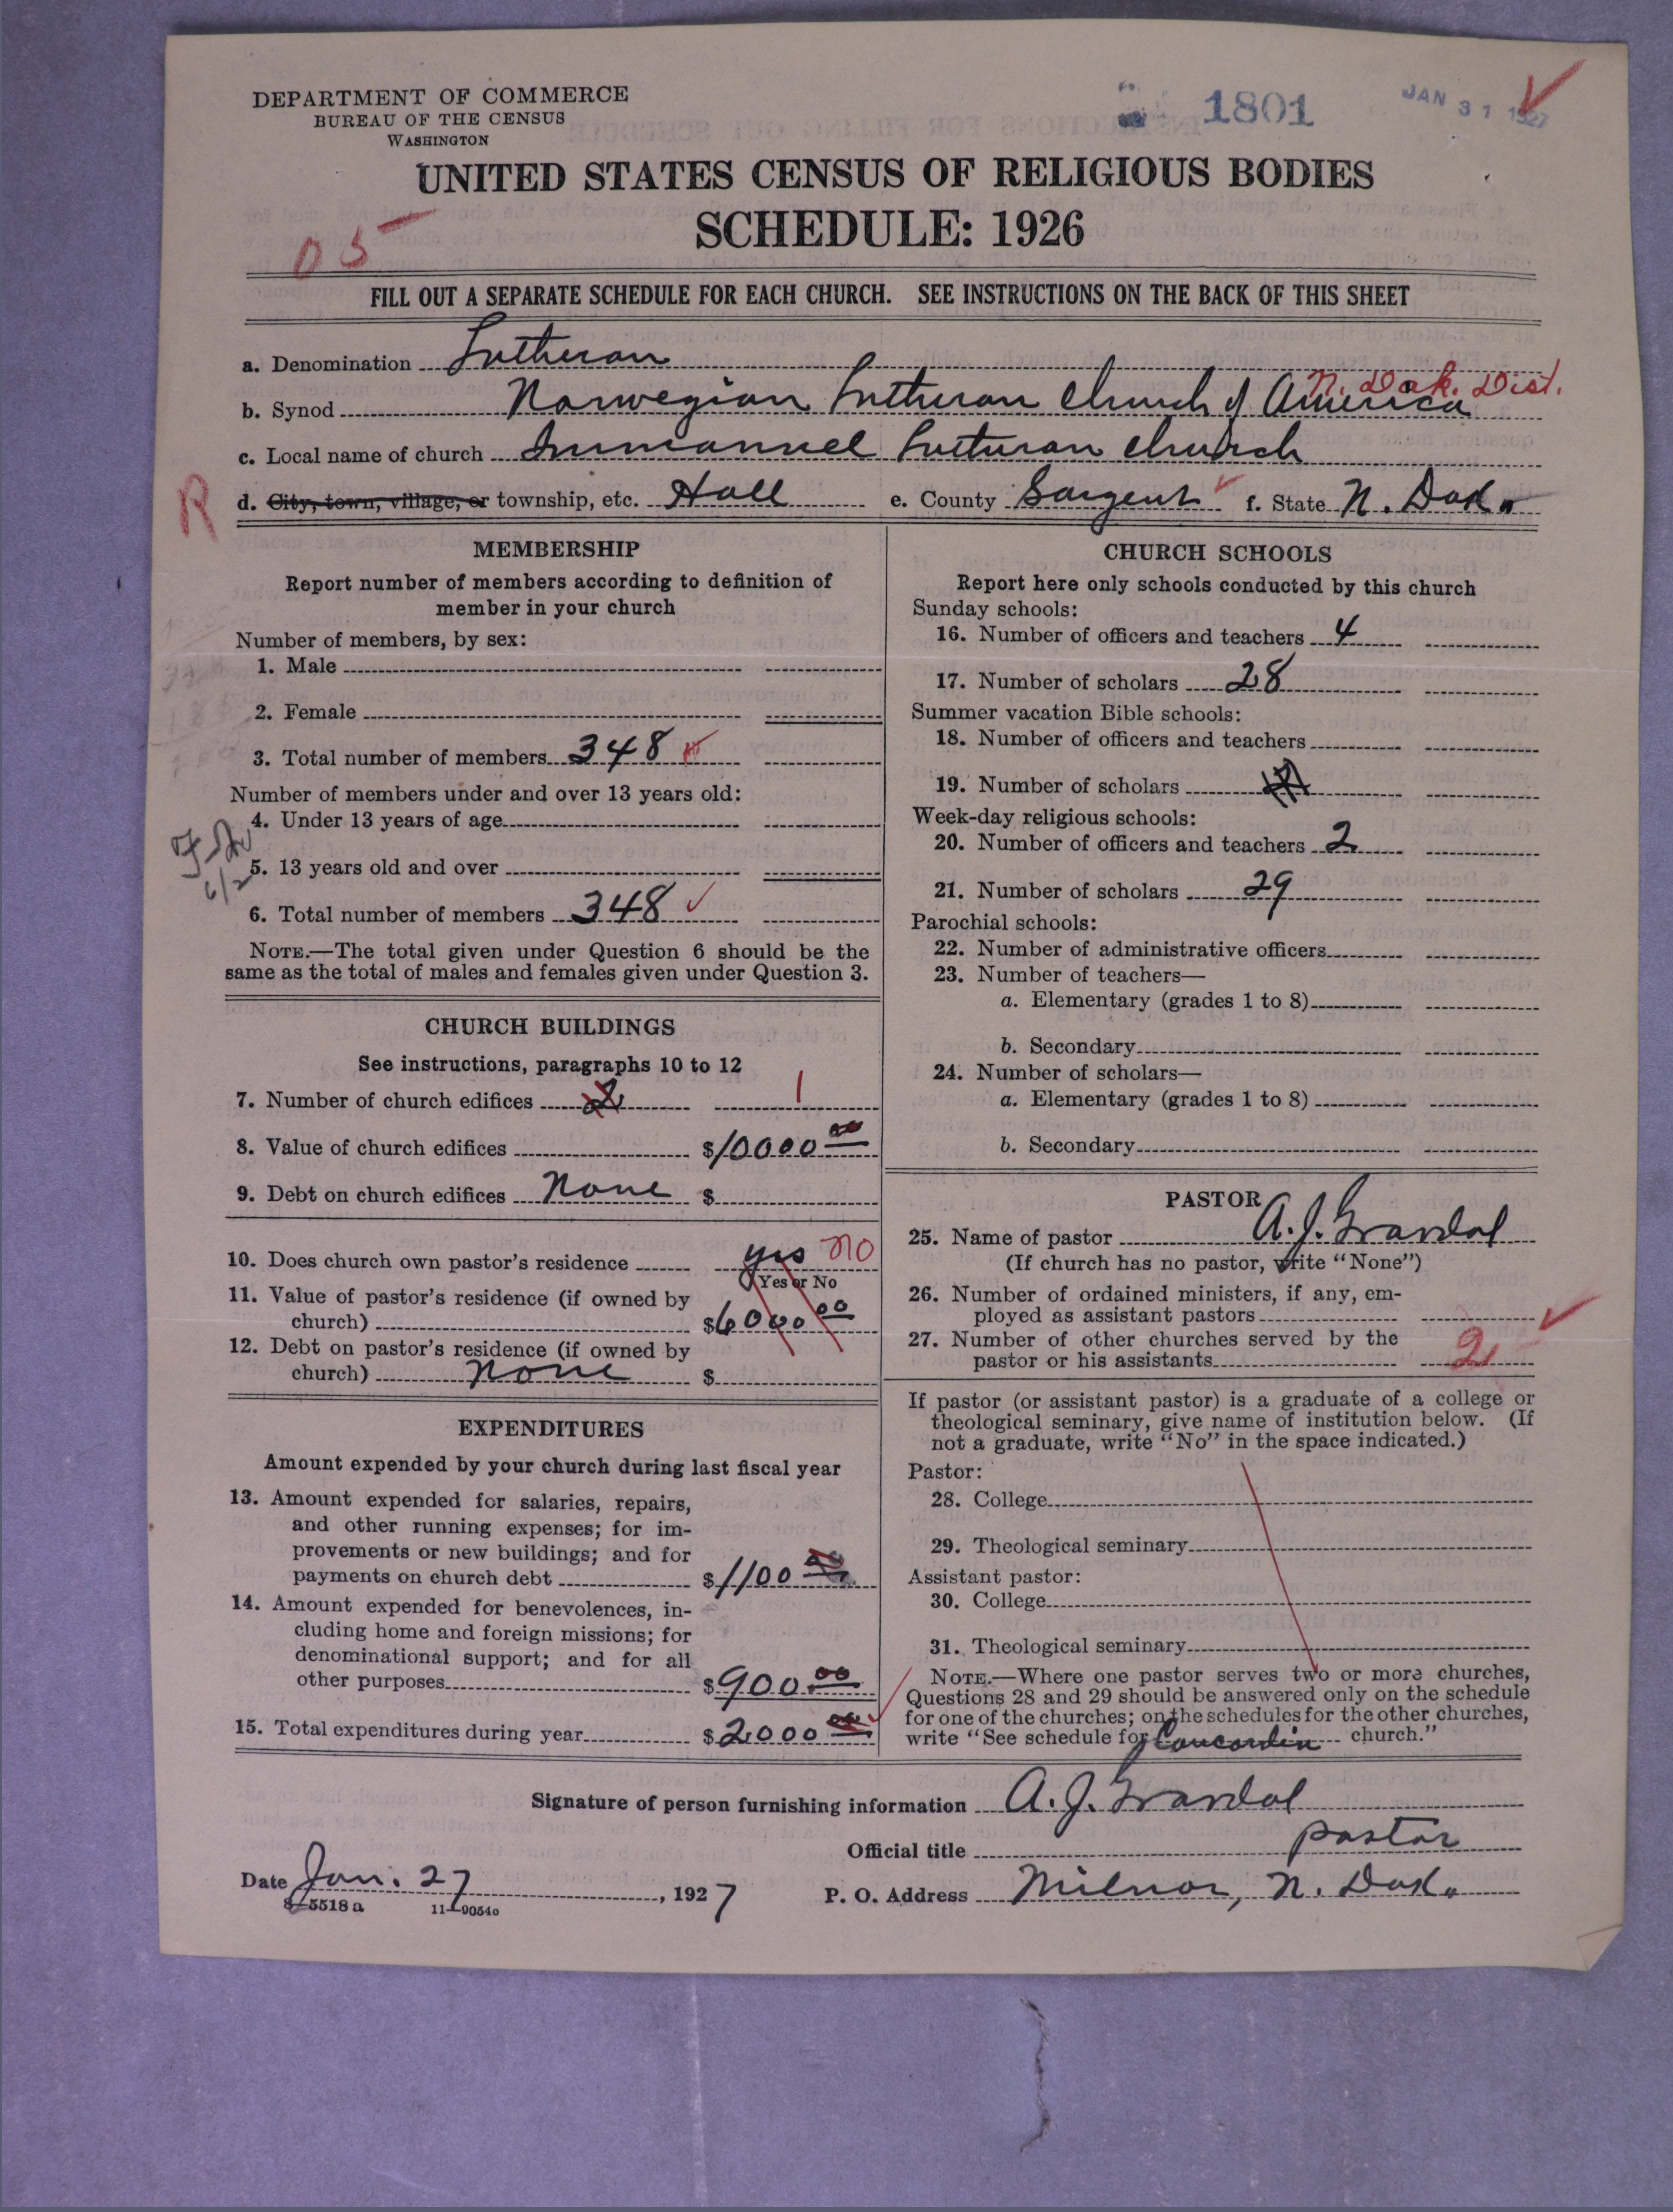 DEPARTMENT OF COMMERCE
BUREAU OF THE CENSUS
WASHINGTON
1801
JAN 31 1927
UNITED STATES CENSUS OF RELIGIOUS BODIES
SCHEDULE: 1926
05
FILL OUT A SEPARATE SCHEDULE FOR EACH CHURCH. SEE INSTRUCTIONS ON THE BACK OF THIS SHEET
a. Denomination Lutheran
N. Dak. Dist.
b. Synod Norwegian Lutheran Church of America
c. Local name of church Immanuel Lutheran Church
R
d. City, town, village, or township, etc. Hall e. County Sargent f. State N. Dak.
MEMBERSHIP
Report number of members according to definition of
member in your church
Number of members, by sex:
1. Male
2. Female
3. Total number of members 348
Number of members under and over 13 years old:
4. Under 13 years of age
5. 13 years old and over
6. Total number of members 348
NOTE.—The total given under Question 6 should be the
same as the total of males and females given under Question 3.
CHURCH BUILDINGS
See instructions, paragraphs 10 to 12
7. Number of church edifices 2 1
8. Value of church edifices $10000 00
9. Debt on church edifices None $
10. Does church own pastor's residence yes no
Yes or No
11. Value of pastor's residence (if owned by
church) $6000 00
12. Debt on pastor's residence (if owned by
church) none $
EXPENDITURES
Amount expended by your church during last fiscal year
13. Amount expended for salaries, repairs,
and other running expenses; for im-
provements or new buildings; and for
payments on church debt $1100 00
14. Amount expended for benevolences, in-
cluding home and foreign missions; for
denominational support; and for all
other purposes $900.00
15. Total expenditures during year $2000 00
CHURCH SCHOOLS
Report here only schools conducted by this church
Sunday schools:
16. Number of officers and teachers 4
17. Number of scholars 28
Summer vacation Bible schools:
18. Number of officers and teachers
19. Number of scholars
Week-day religious schools:
20. Number of officers and teachers 2
21. Number of scholars 29
Parochial schools:
22. Number of administrative officers
23. Number of teachers—
a. Elementary (grades 1 to 8)
b. Secondary
24. Number of scholars—
a. Elementary (grades 1 to 8)
b. Secondary
PASTOR
25. Name of pastor A. J. Grandal
(If church has no pastor, write "None")
26. Number of ordained ministers, if any, em-
ployed as assistant pastors
27. Number of other churches served by the
pastor or his assistants 2
If pastor (or assistant pastor) is a graduate of a college or
theological seminary, give name of institution below. (If
not a graduate, write "No" in the space indicated.)
Pastor:
28. College
29. Theological seminary
Assistant pastor:
30. College
31. Theological seminary
NOTE.—Where one pastor serves two or more churches,
Questions 28 and 29 should be answered only on the schedule
for one of the churches; on the schedules for the other churches,
write "See schedule for Concordia church."
Signature of person furnishing information A. J. Grandal
Official title pastor
Date Jan. 27, 1927 P. O. Address Milnor, N. Dak.
8—5518 a 11—9054o